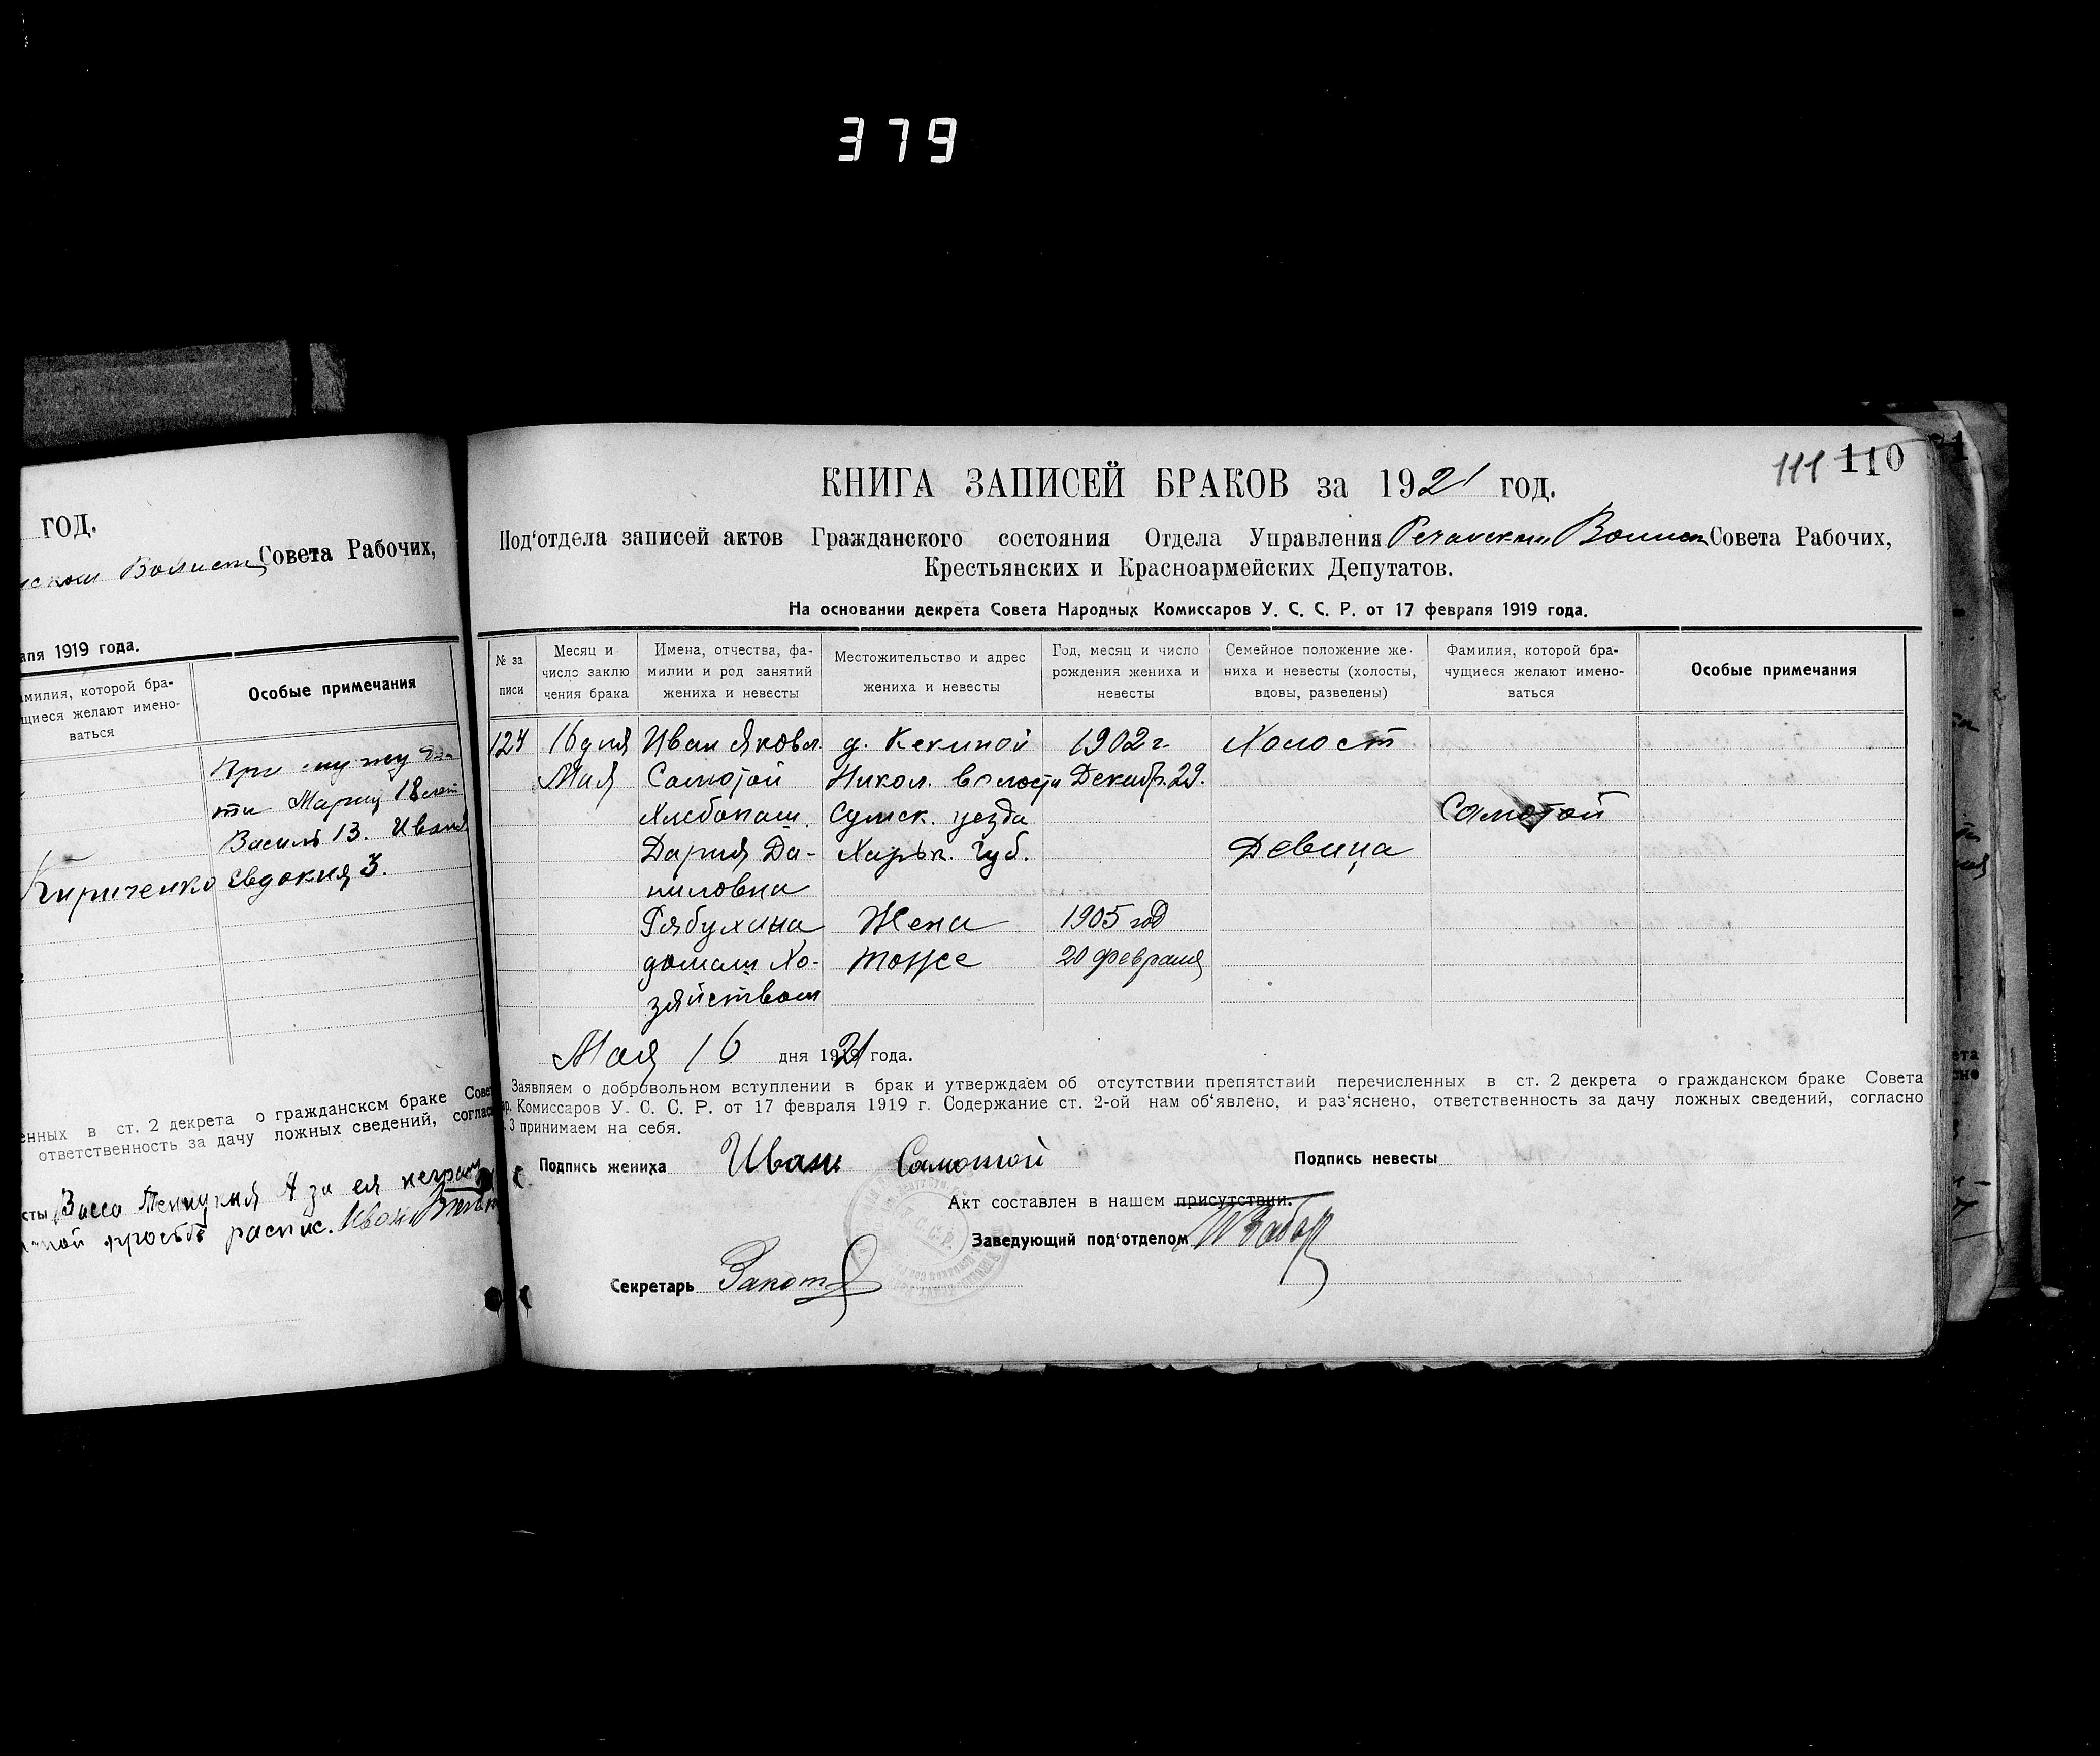 379
год.
Совета Рабочих,
1919 года.
Особые примечания
щиеся желают имено-
ваться
При
ти Марии 18 лет
Василь 13. Ивана
Кириченко Евдокия 3.
в ст. 2 декрета о гражданском браке
ответственность за дачу ложных сведений,
Васса А за ея
просьбе распис. Иван
111 110
КНИГА ЗАПИСЕЙ БРАКОВ за 1921 год.
Под'отдела записей актов Гражданского состояния Отдела Управления Совета Рабочих,
Крестьянских и Красноармейских Депутатов.
На основании декрета Совета Народных Комиссаров У. С. С. Р. от 17 февраля 1919 года.
№ за писи
Месяц и число заклю чения брака
Имена, отчества, фа- милии и род занятий жениха и невесты
Местожительство и адрес жениха и невесты
Год, месяц и число рождения жениха и невесты
Семейное положение же- ниха и невесты (холосты, вдовы, разведены)
Фамилия, которой бра- чущиеся желают имено- ваться
Особые примечания
124 16 дня Иван Яковл. д. Кекиной 1902 г. Холост
Мая Самотой Никол. волости Декабр. 29.
Хлебопаш. Сумск. уезда Самотой
Дария Да- Харьк. Губ. Девица
ниловна
Рябухина Жена 1905 год
домаш Хо- тоже 20 февраля
зяйством
Мая 16 дня 1921 года.
Заявляем о добровольном вступлении в брак и утверждаем об отсутствии препятствий перечисленных в ст. 2 декрета о гражданском браке Совета
Комиссаров У. С. С. Р. от 17 февраля 1919 г. Содержание ст. 2-ой нам об'явлено, и раз'яснено, ответственность за дачу ложных сведений, согласно
3 принимаем на себя.
Подпись жениха Иван Самотой Подпись невесты
Акт составлен в нашем присутствии.
Заведующий под'отделом
Секретарь